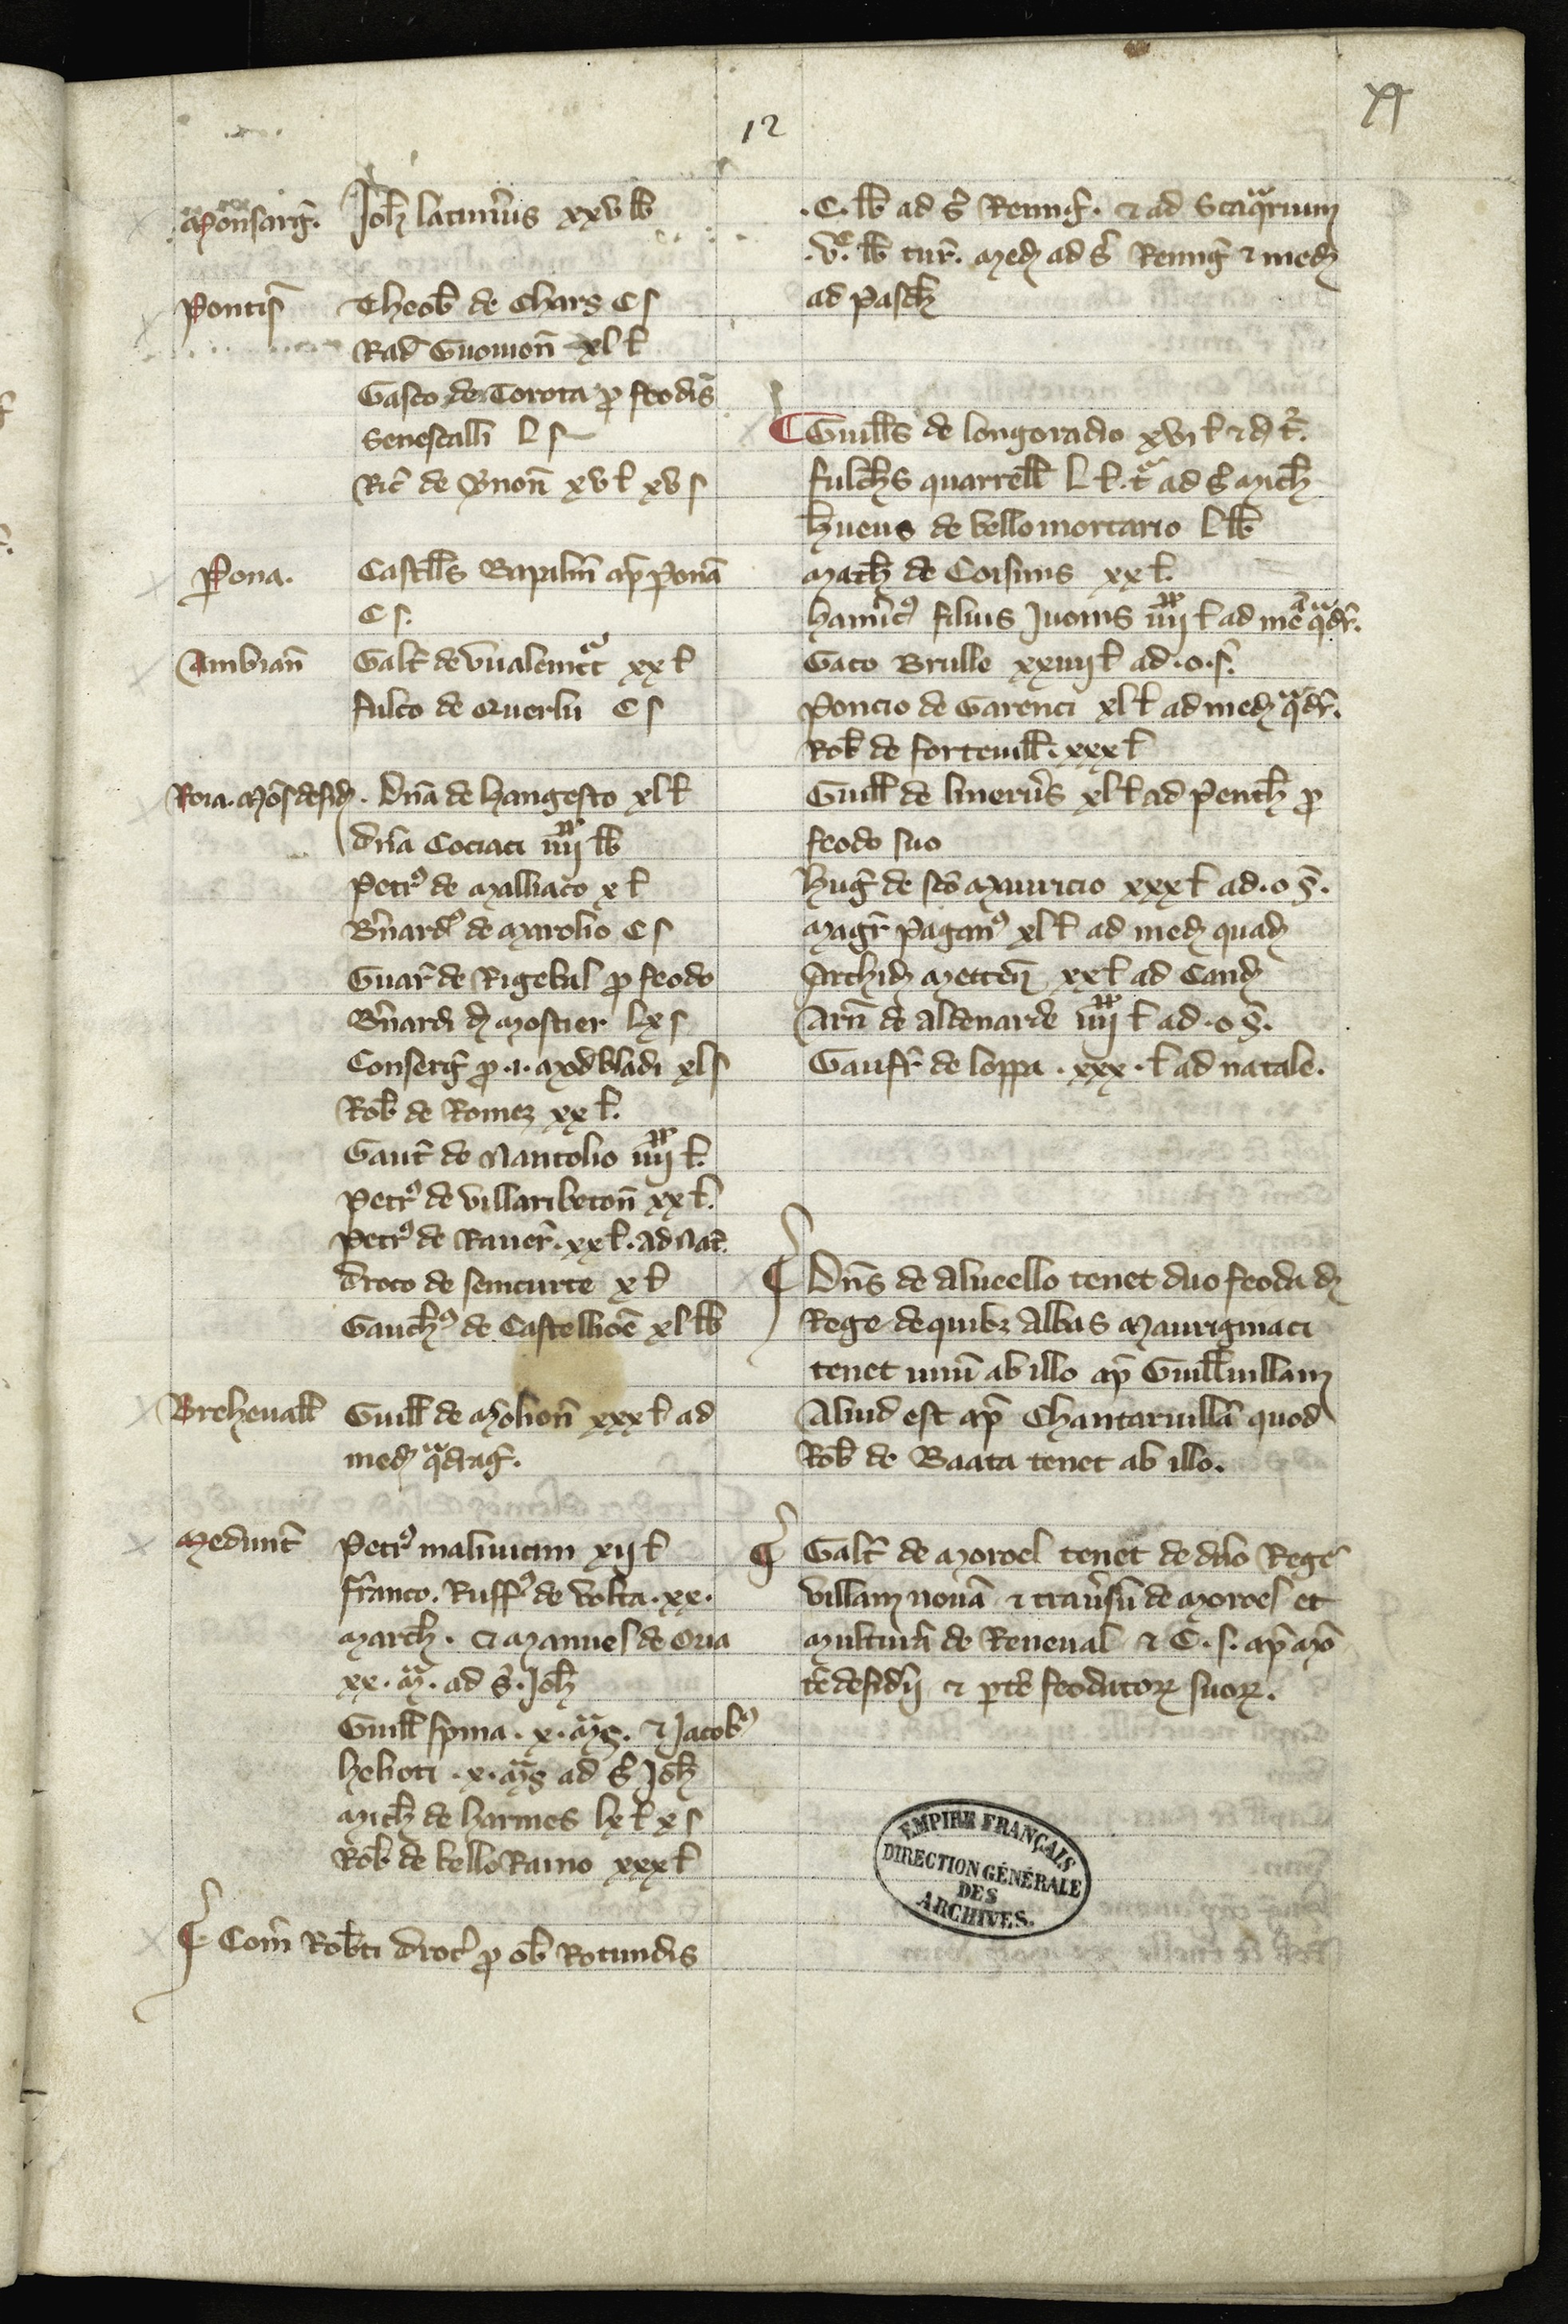 12
XI
Monsarg̃. Joh̃ latim̃us xxv lb̃
Pontis̃ Theob̃ de Chars C s
Rad̃ Guomoñ xl l̃
Gasco de Torota p̃ feodis
Senescalli L s
Ric̃ de V̾noñ xv l̃ xv s
Perona. Castell̃s Bapalm̃ ap̃ Ponã
C s.
Ambiañ Galt̃ de Vualeinc̃t xx l̃
Fulco de Querlu C s
Roia. Mõsdesid̃. Dñã de hangesto xl l̃
Dña Cociaci iiij^xx lb̃
Petrꝰ de Malliaco x l̃
B̃nardꝰ de Marolio C s
Guar̃ de Rigebal p̃ feodo
B̃nardi d̃ Mostier Lx s
Conserg̃ p̃ .i. mod̃ bladi xl s
Rob̃ de Romez xx l̃.
Gaut̃ de Nantolio iiij^xx l̃.
Petrꝰ de villaribetoñ xx l̃.
Petrꝰ de Rauer̃. xx l̃. ad Nat̃.
Droco de semcurte x l̃
Gauch̃ꝰ de Castellioẽ xl lb̃
Breheuall̃ Guill̃ de M̾olioñ xxx l̃ ad
med̃ q̃drag̃.
Medunt̃ Petrꝰ maliuicini xij l̃
Franco. Ruffꝰ de Volta. xx.
march̃. et Manuel de Oria
xx. m̃. ad S̃. Joh̃
Guill̃ spina. x. m̃s. ⁊ Jacobꝰ
helioti .x. m̃s ad S̃ Joh̃
Mich̃ de harmes lx l̃ x s
Rob̃ de bello Ramo xxx l̃
¶ Com̃ Rob̃ti Droc̃ p̃ ob̃ Rotundis
.C. lb̃ ad S̃ Remig̃. ⁊ ad Scaq̃rium
.v^c. lb̃ tur̃. med̃ ad S̃ Remig̃ ⁊ med̃
ad Pasch̃
¶ Guill̃s de longoradio xvi l̃ ⁊ d̃ t̃.
Fulch̃s quarrell̃ L l̃. t̃ ad S̃ Mich̃
hueus de bellomortario L lb̃
Math̃ de Coisinis xx l̃.
hamric̃ꝰ filius Juonis iiij^xx l̃ ad mẽ q̃dr̃.
Gaco Brulle xxiiij l̃ ad .o. s̃.
Poncio de Garenci xl l̃ ad med̃ q̃dr̃.
Rob̃ de forteuill̃. xxx l̃
Guill̃ de liuer̃is xl l̃ ad Pench̃ p̃
feodo suo
hug̃ de sc̃o Mauricio xxx l̃ ad .o s̃.
Magr̃ Paganꝰ xl l̃ ad med̃ quad̃
Archid̃ Metteñ xx l̃ ad Cand̃
Arñ de aldenarde iiij^xx l̃ ad .o s̃.
Gaufr̃ de loppa . xxx . l̃ ad natale.
¶ Dñs de Alueello tenet duo feoda d̃
Rege de quibꝫ Abbas Mauriginaci
tenet unũ ab illo ap̃ Guill̃uillam
Aliud est ap̃ Chantaruillã quod
Rob̃ de Baata tenet ab illo.
¶ Galt̃ de Moroel tenet de dño Rege
villam nouã ⁊ trauersũ de Moroel et
multurã de Reneual ⁊ C. s. ap̃ Mõ
tẽdesid̃ij ⁊ p̃tẽ feodatoꝝ suoꝝ.
EMPIRE FRANÇAIS
DIRECTION GÉNÉRALE
DES
ARCHIVES.